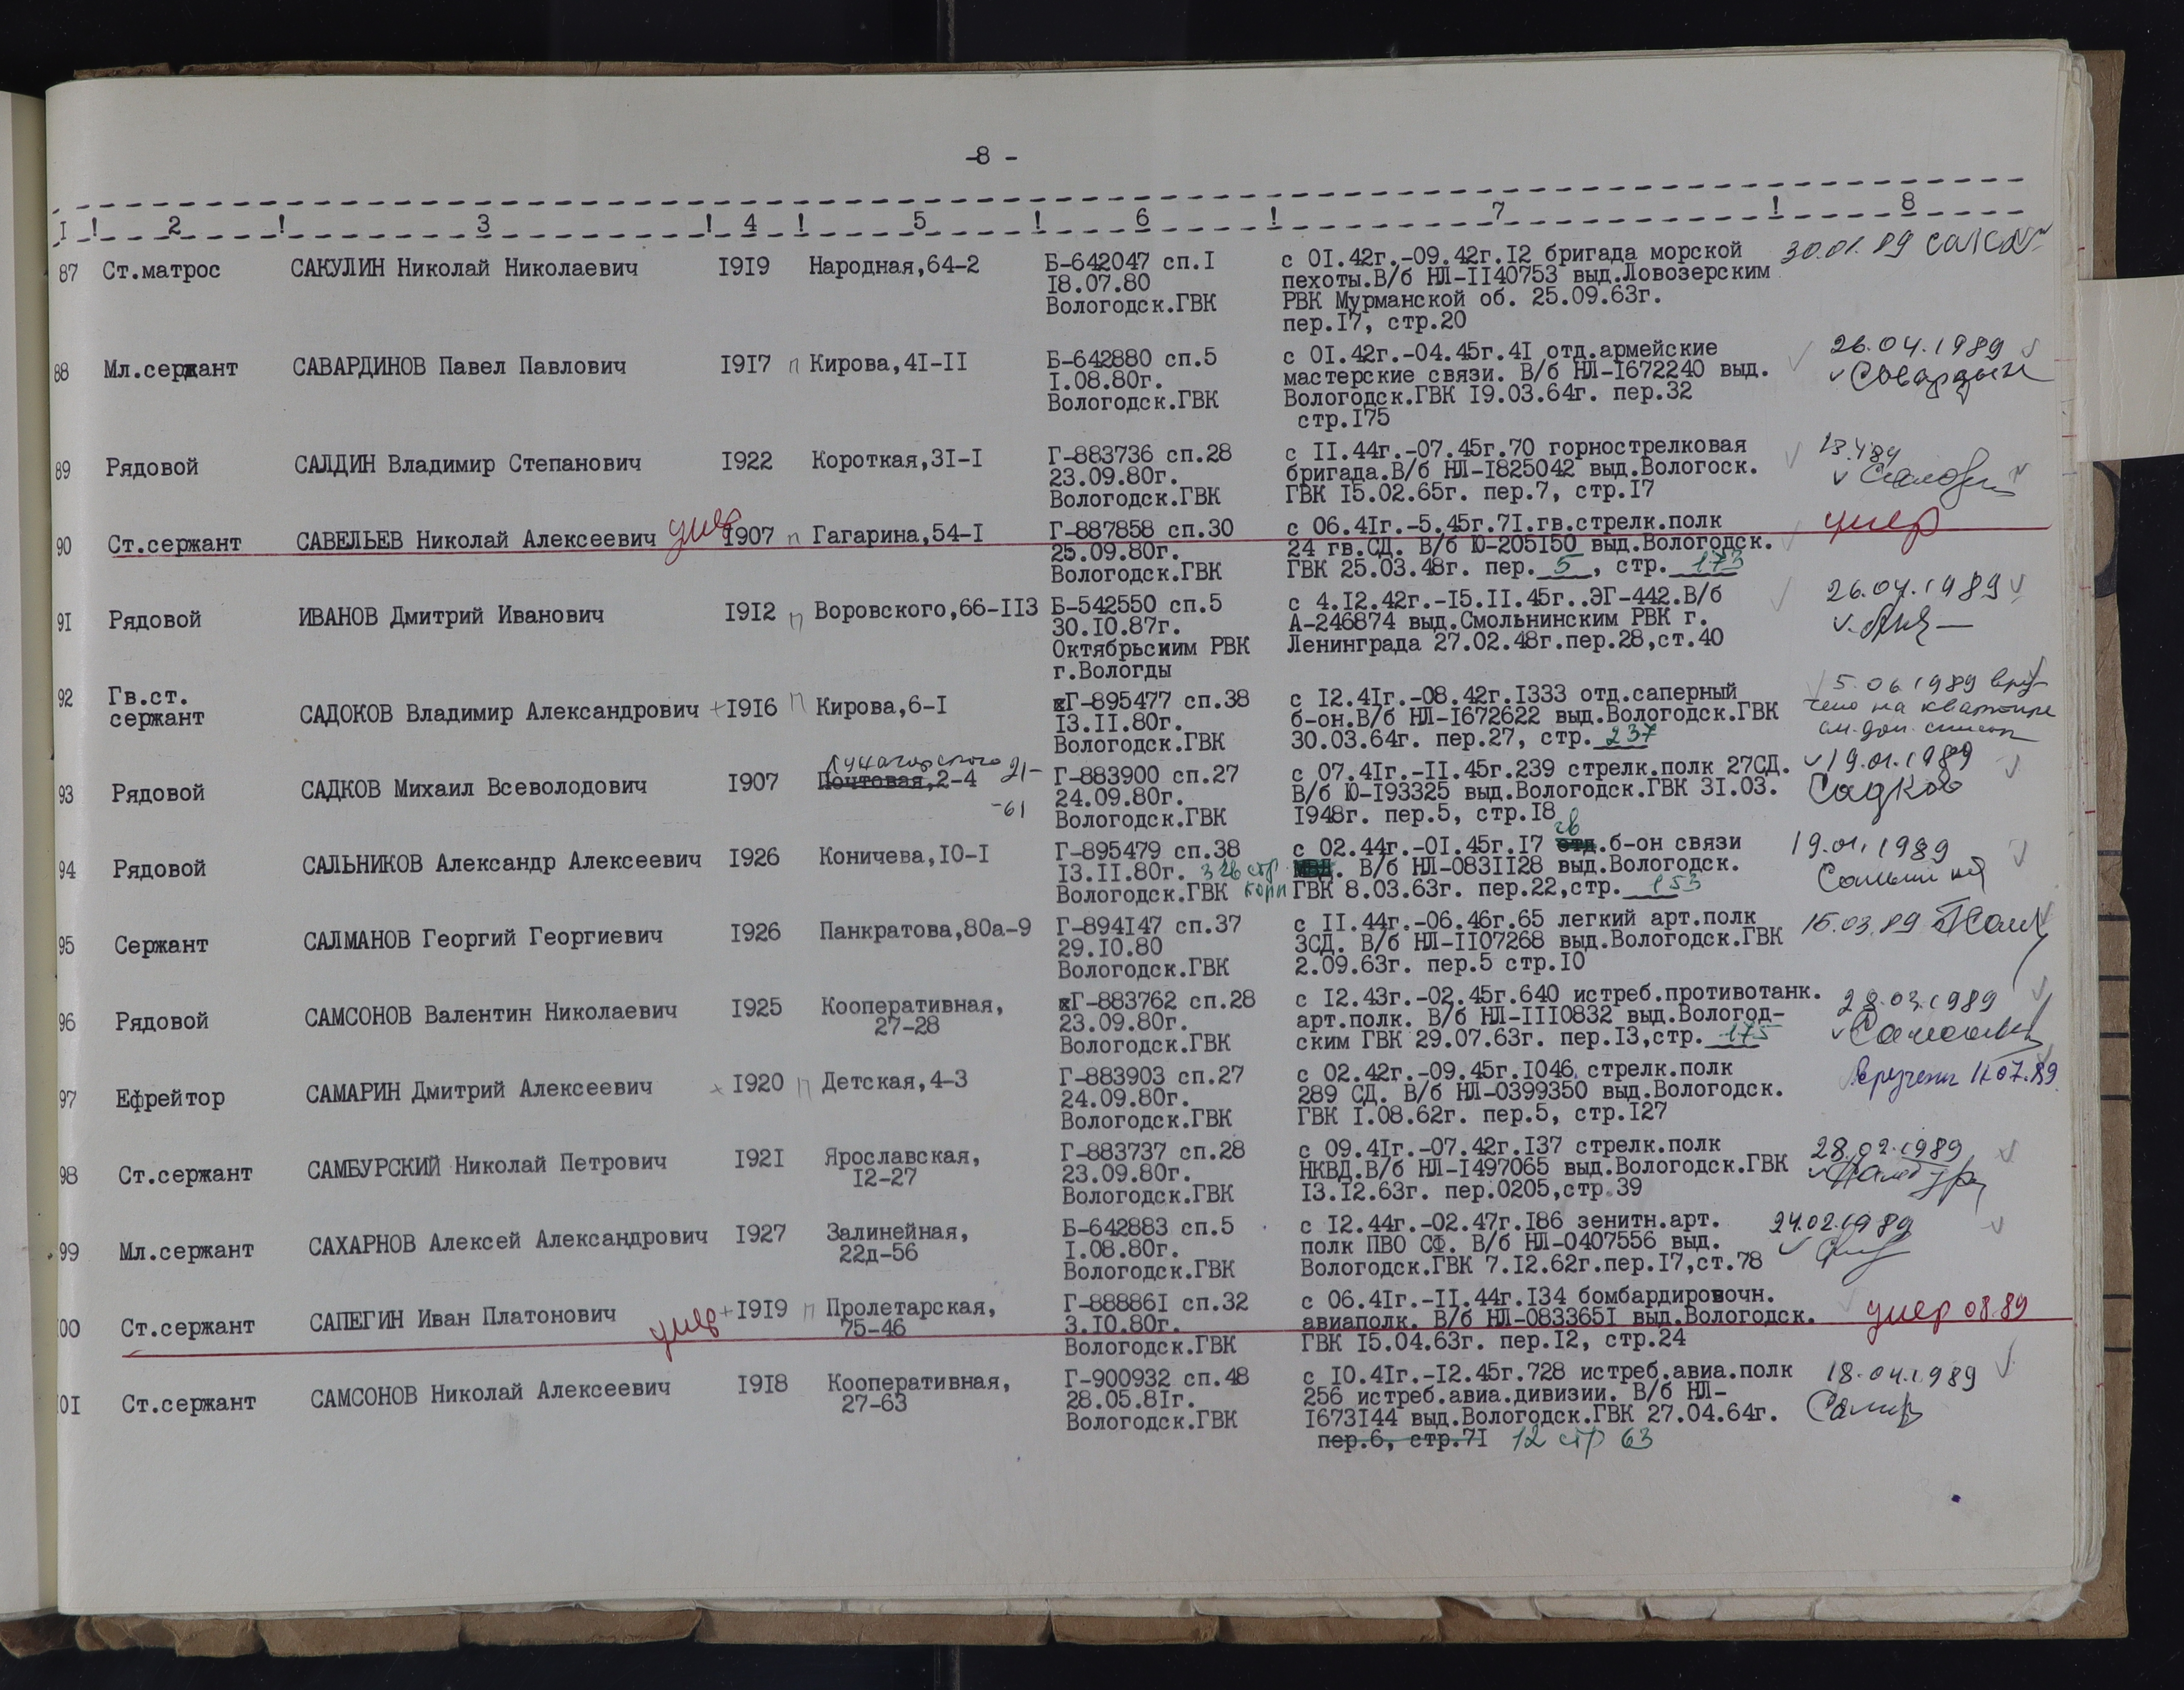 -8 -
I ! 2 ! 3 ! 4 ! 5 ! 6 ! 7 ! 8
87 Ст.матрос САКУЛИН Николай Николаевич I9I9 Народная,64-2 Б-642047 сп.I с 0I.42г.-09.42г.I2 бригада морской 30.01.89
I8.07.80 пехоты.В/б НЛ-II40753 выд.Ловозерским
Вологодск.ГВК РВК Мурманской об. 25.09.63г.
пер.I7, стр.20
88 Мл.сержант САВАРДИНОВ Павел Павлович I9I7 п Кирова,4I-II Б-642880 сп.5 с 0I.42г.-04.45г.4I отд.армейские 26.04.1989
I.08.80г. мастерские связи. В/б НЛ-I672240 выд.
Вологодск.ГВК Вологодск.ГВК I9.03.64г. пер.32
стр.I75
89 Рядовой САЛДИН Владимир Степанович I922 Короткая,3I-I Г-883736 сп.28 с II.44г.-07.45г.70 горнострелковая
23.09.80г. бригада.В/б НЛ-I825042 выд.Вологоск.
Вологодск.ГВК ГВК I5.02.65г. пер.7, стр.I7
90 Ст.сержант САВЕЛЬЕВ Николай Алексеевич умер I907 п Гагарина,54-I Г-887858 сп.30 с 06.4Iг.-5.45г.7I.гв.стрелк.полк умер
25.09.80г. 24 гв.СД. В/б Ю-205I50 выд.Вологодск.
Вологодск.ГВК ГВК 25.03.48г. пер. 5 , стр. 173
9I Рядовой ИВАНОВ Дмитрий Иванович I9I2 п Воровского,66-II3 Б-542550 сп.5 с 4.I2.42г.-I5.II.45г..ЭГ-442.В/б 26.04.1989
30.I0.87г. А-246874 выд.Смольнинским РВК г.
Октябрьским РВК Ленинграда 27.02.48г.пер.28,ст.40
г.Вологды
92 Гв.ст. сержант САДОКОВ Владимир Александрович + I9I6 п Кирова,6-I Г-895477 сп.38 с I2.4Iг.-08.42г.I333 отд.саперный 5.06.1989 вру-
I3.II.80г. б-он.В/б НЛ-I672622 выд.Вологодск.ГВК чено на квартире
Вологодск.ГВК 30.03.64г. пер.27, стр. 237 см. доп. список
Луначарского 21-
93 Рядовой САДКОВ Михаил Всеволодович I907 Почтовая,2-4 Г-883900 сп.27 с 07.4Iг.-II.45г.239 стрелк.полк 27СД. 19.01.1989
-61 24.09.80г. В/б Ю-I93325 выд.Вологодск.ГВК 3I.03. Садков
Вологодск.ГВК I948г. пер.5, стр.I8
гв
94 Рядовой САЛЬНИКОВ Александр Алексеевич I926 Коничева,I0-I Г-895479 сп.38 с 02.44г.-0I.45г.I7 отд.б-он связи 19.01.1989
I3.II.80г. 326 стр МВД. В/б НЛ-083II28 выд.Вологодск.
Вологодск.ГВК ГВК 8.03.63г. пер.22,стр. 153
95 Сержант САЛМАНОВ Георгий Георгиевич I926 Панкратова,80а-9 Г-894I47 сп.37 с II.44г.-06.46г.65 легкий арт.полк 15.03.89
29.I0.80 3СД. В/б НЛ-II07268 выд.Вологодск.ГВК
Вологодск.ГВК 2.09.63г. пер.5 стр.I0
96 Рядовой САМСОНОВ Валентин Николаевич I925 Кооперативная, Г-883762 сп.28 с I2.43г.-02.45г.640 истреб.противотанк. 28.03.1989
27-28 23.09.80г. арт.полк. В/б НЛ-III0832 выд.Вологод-
Вологодск.ГВК ским ГВК 29.07.63г. пер.I3,стр. 175
97 Ефрейтор САМАРИН Дмитрий Алексеевич I920 п Детская,4-3 Г-883903 сп.27 с 02.42г.-09.45г.I046 стрелк.полк 11.07.89
24.09.80г. 289 СД. В/б НЛ-0399350 выд.Вологодск.
Вологодск.ГВК ГВК I.08.62г. пер.5, стр.I27
98 Ст.сержант САМБУРСКИЙ Николай Петрович I92I Ярославская, Г-883737 сп.28 с 09.4Iг.-07.42г.I37 стрелк.полк 28.02.1989
I2-27 23.09.80г. НКВД.В/б НЛ-I497065 выд.Вологодск.ГВК
Вологодск.ГВК I3.I2.63г. пер.0205,стр.39
99 Мл.сержант САХАРНОВ Алексей Александрович I927 Залинейная, Б-642883 сп.5 с I2.44г.-02.47г.I86 зенитн.арт. 24.02.1989
22д-56 I.08.80г. полк ПВО СФ. В/б НЛ-0407556 выд.
Вологодск.ГВК Вологодск.ГВК 7.I2.62г.пер.I7,ст.78
00 Ст.сержант САПЕГИН Иван Платонович умер + I9I9 п Пролетарская, Г-88886I сп.32 с 06.4Iг.-II.44г.I34 бомбардировочн. умер 08.89
75-46 3.I0.80г. авиаполк. В/б НЛ-083365I выд.Вологодск.
Вологодск.ГВК ГВК I5.04.63г. пер.I2, стр.24
0I Ст.сержант САМСОНОВ Николай Алексеевич I9I8 Кооперативная, Г-900932 сп.48 с I0.4Iг.-I2.45г.728 истреб.авиа.полк 18.04.1989
27-63 28.05.8Iг. 256 истреб.авиа.дивизии. В/б НЛ-
Вологодск.ГВК I673I44 выд.Вологодск.ГВК 27.04.64г.
пер.6, стр.7I 12 стр 63